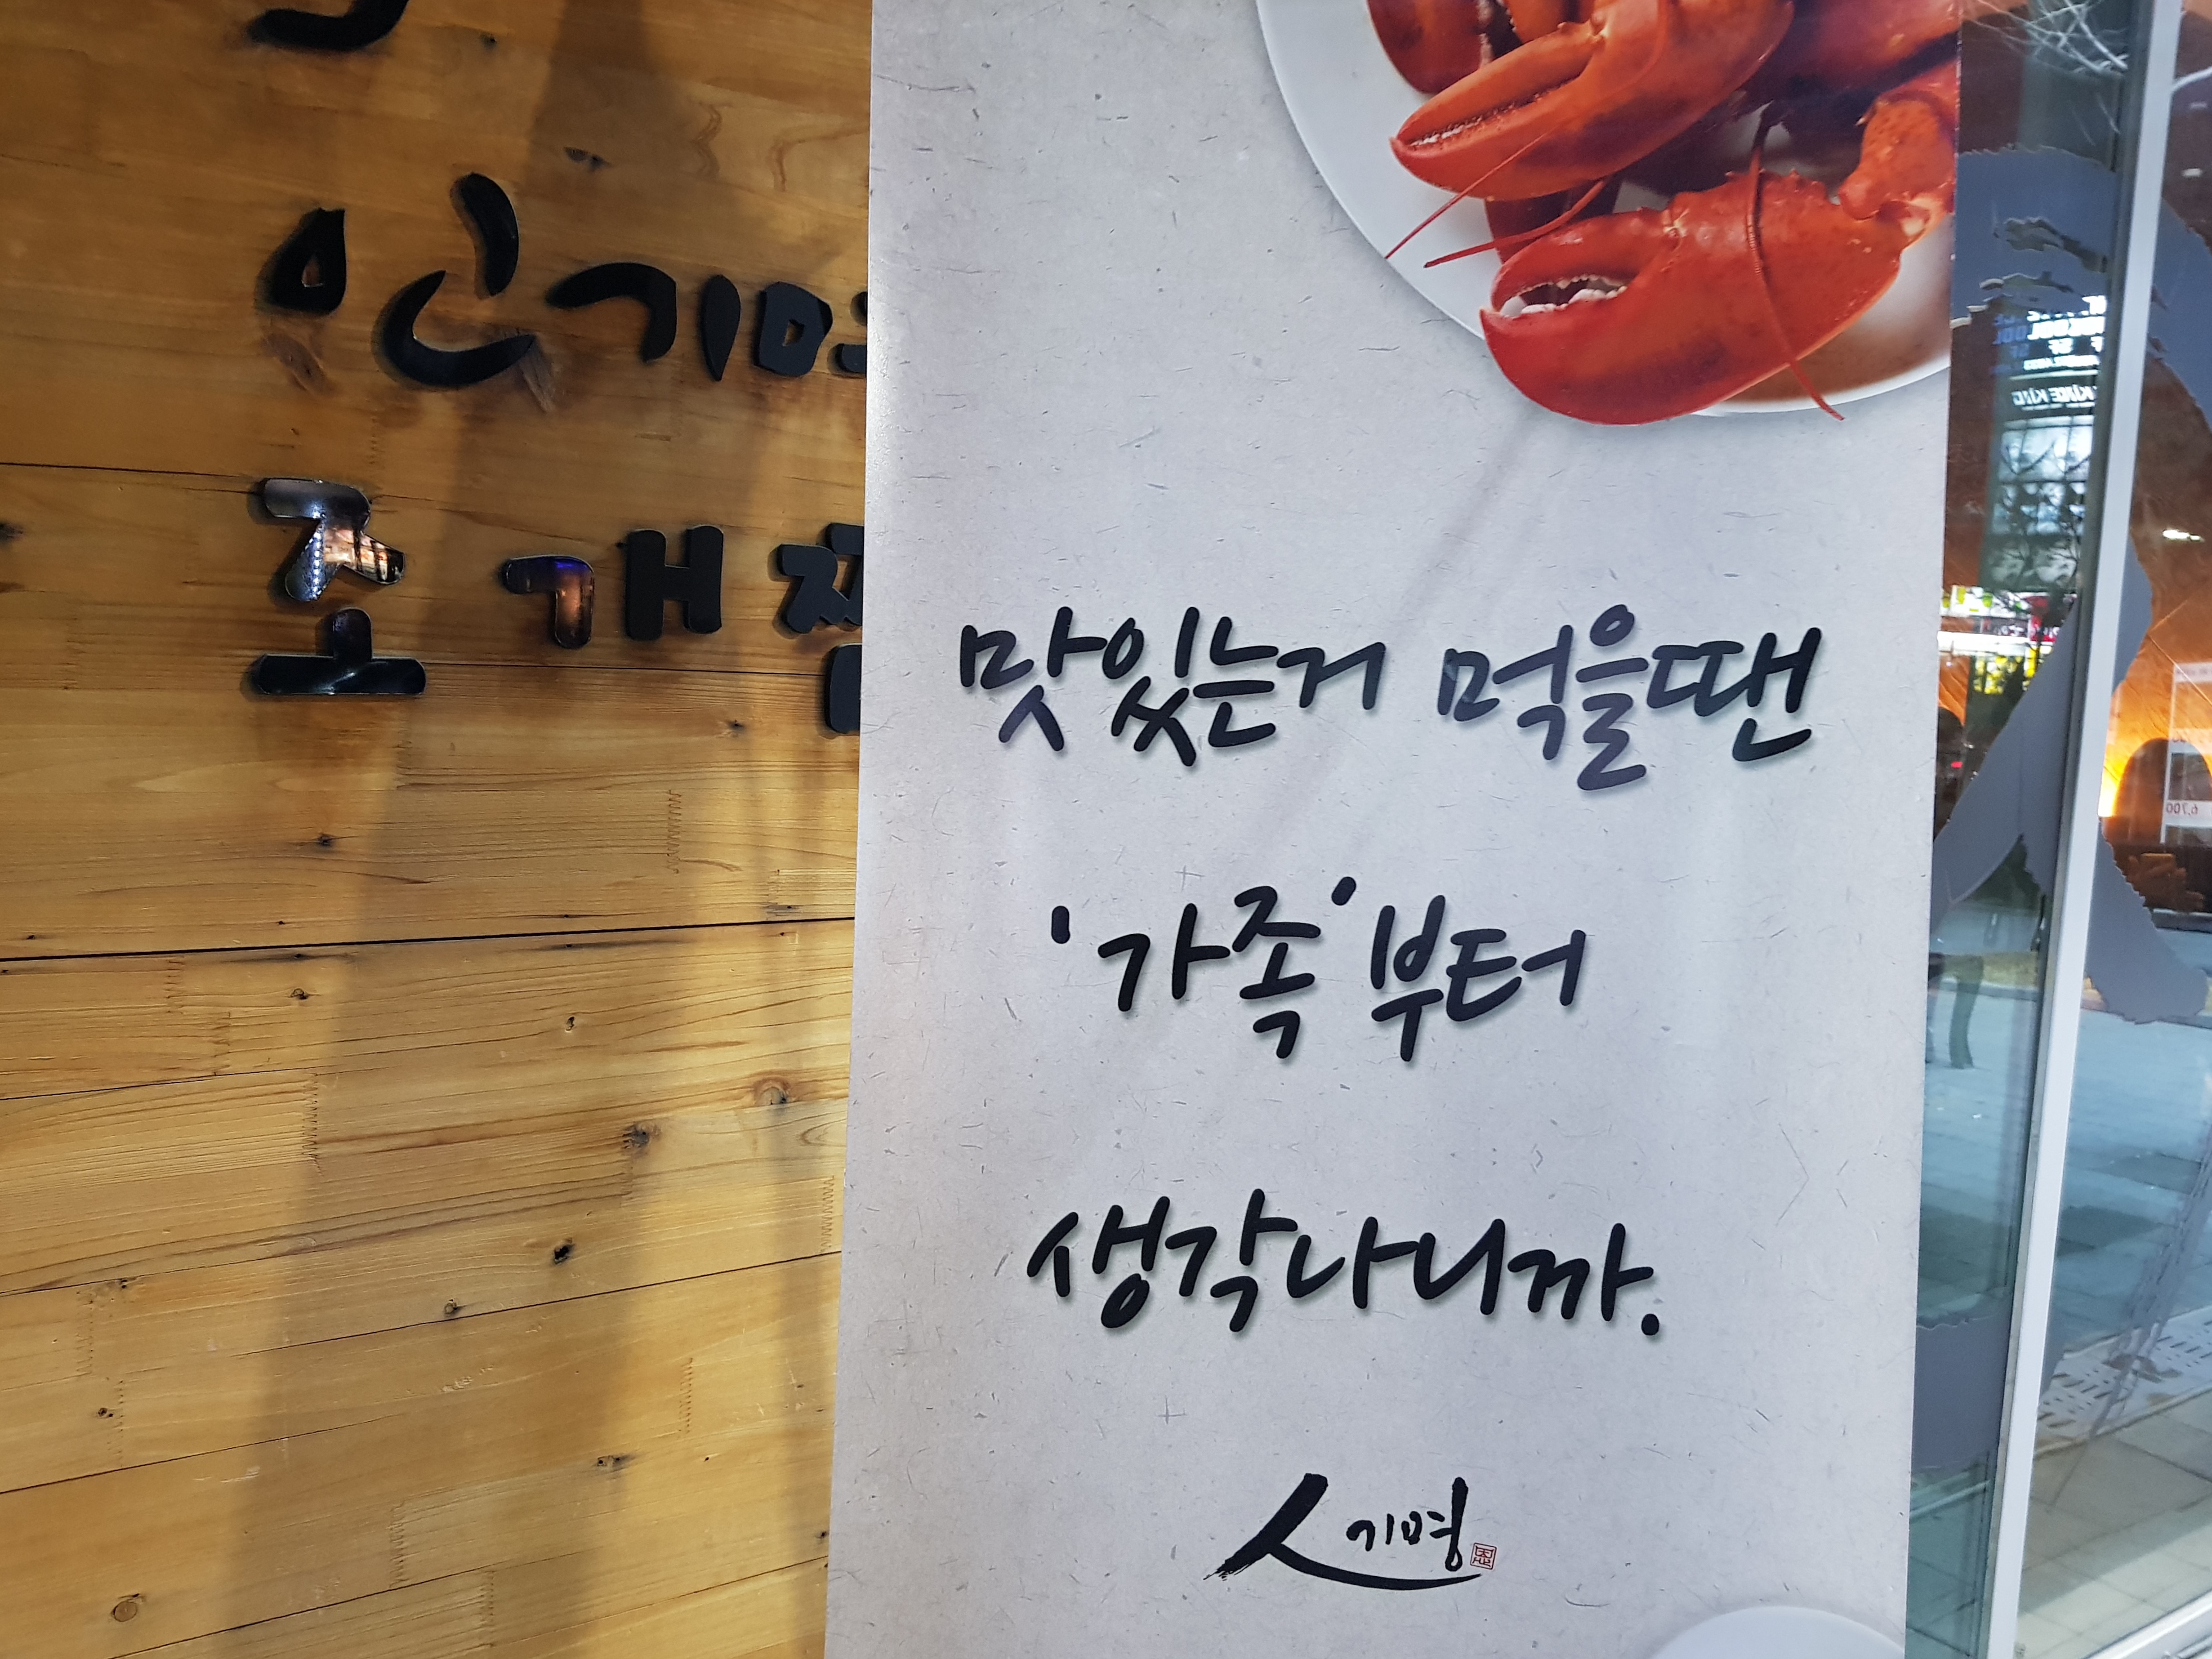 인기명
조개찜
맛있는거 먹을땐
'가족'부터
생각나니까.
人기명
6,700